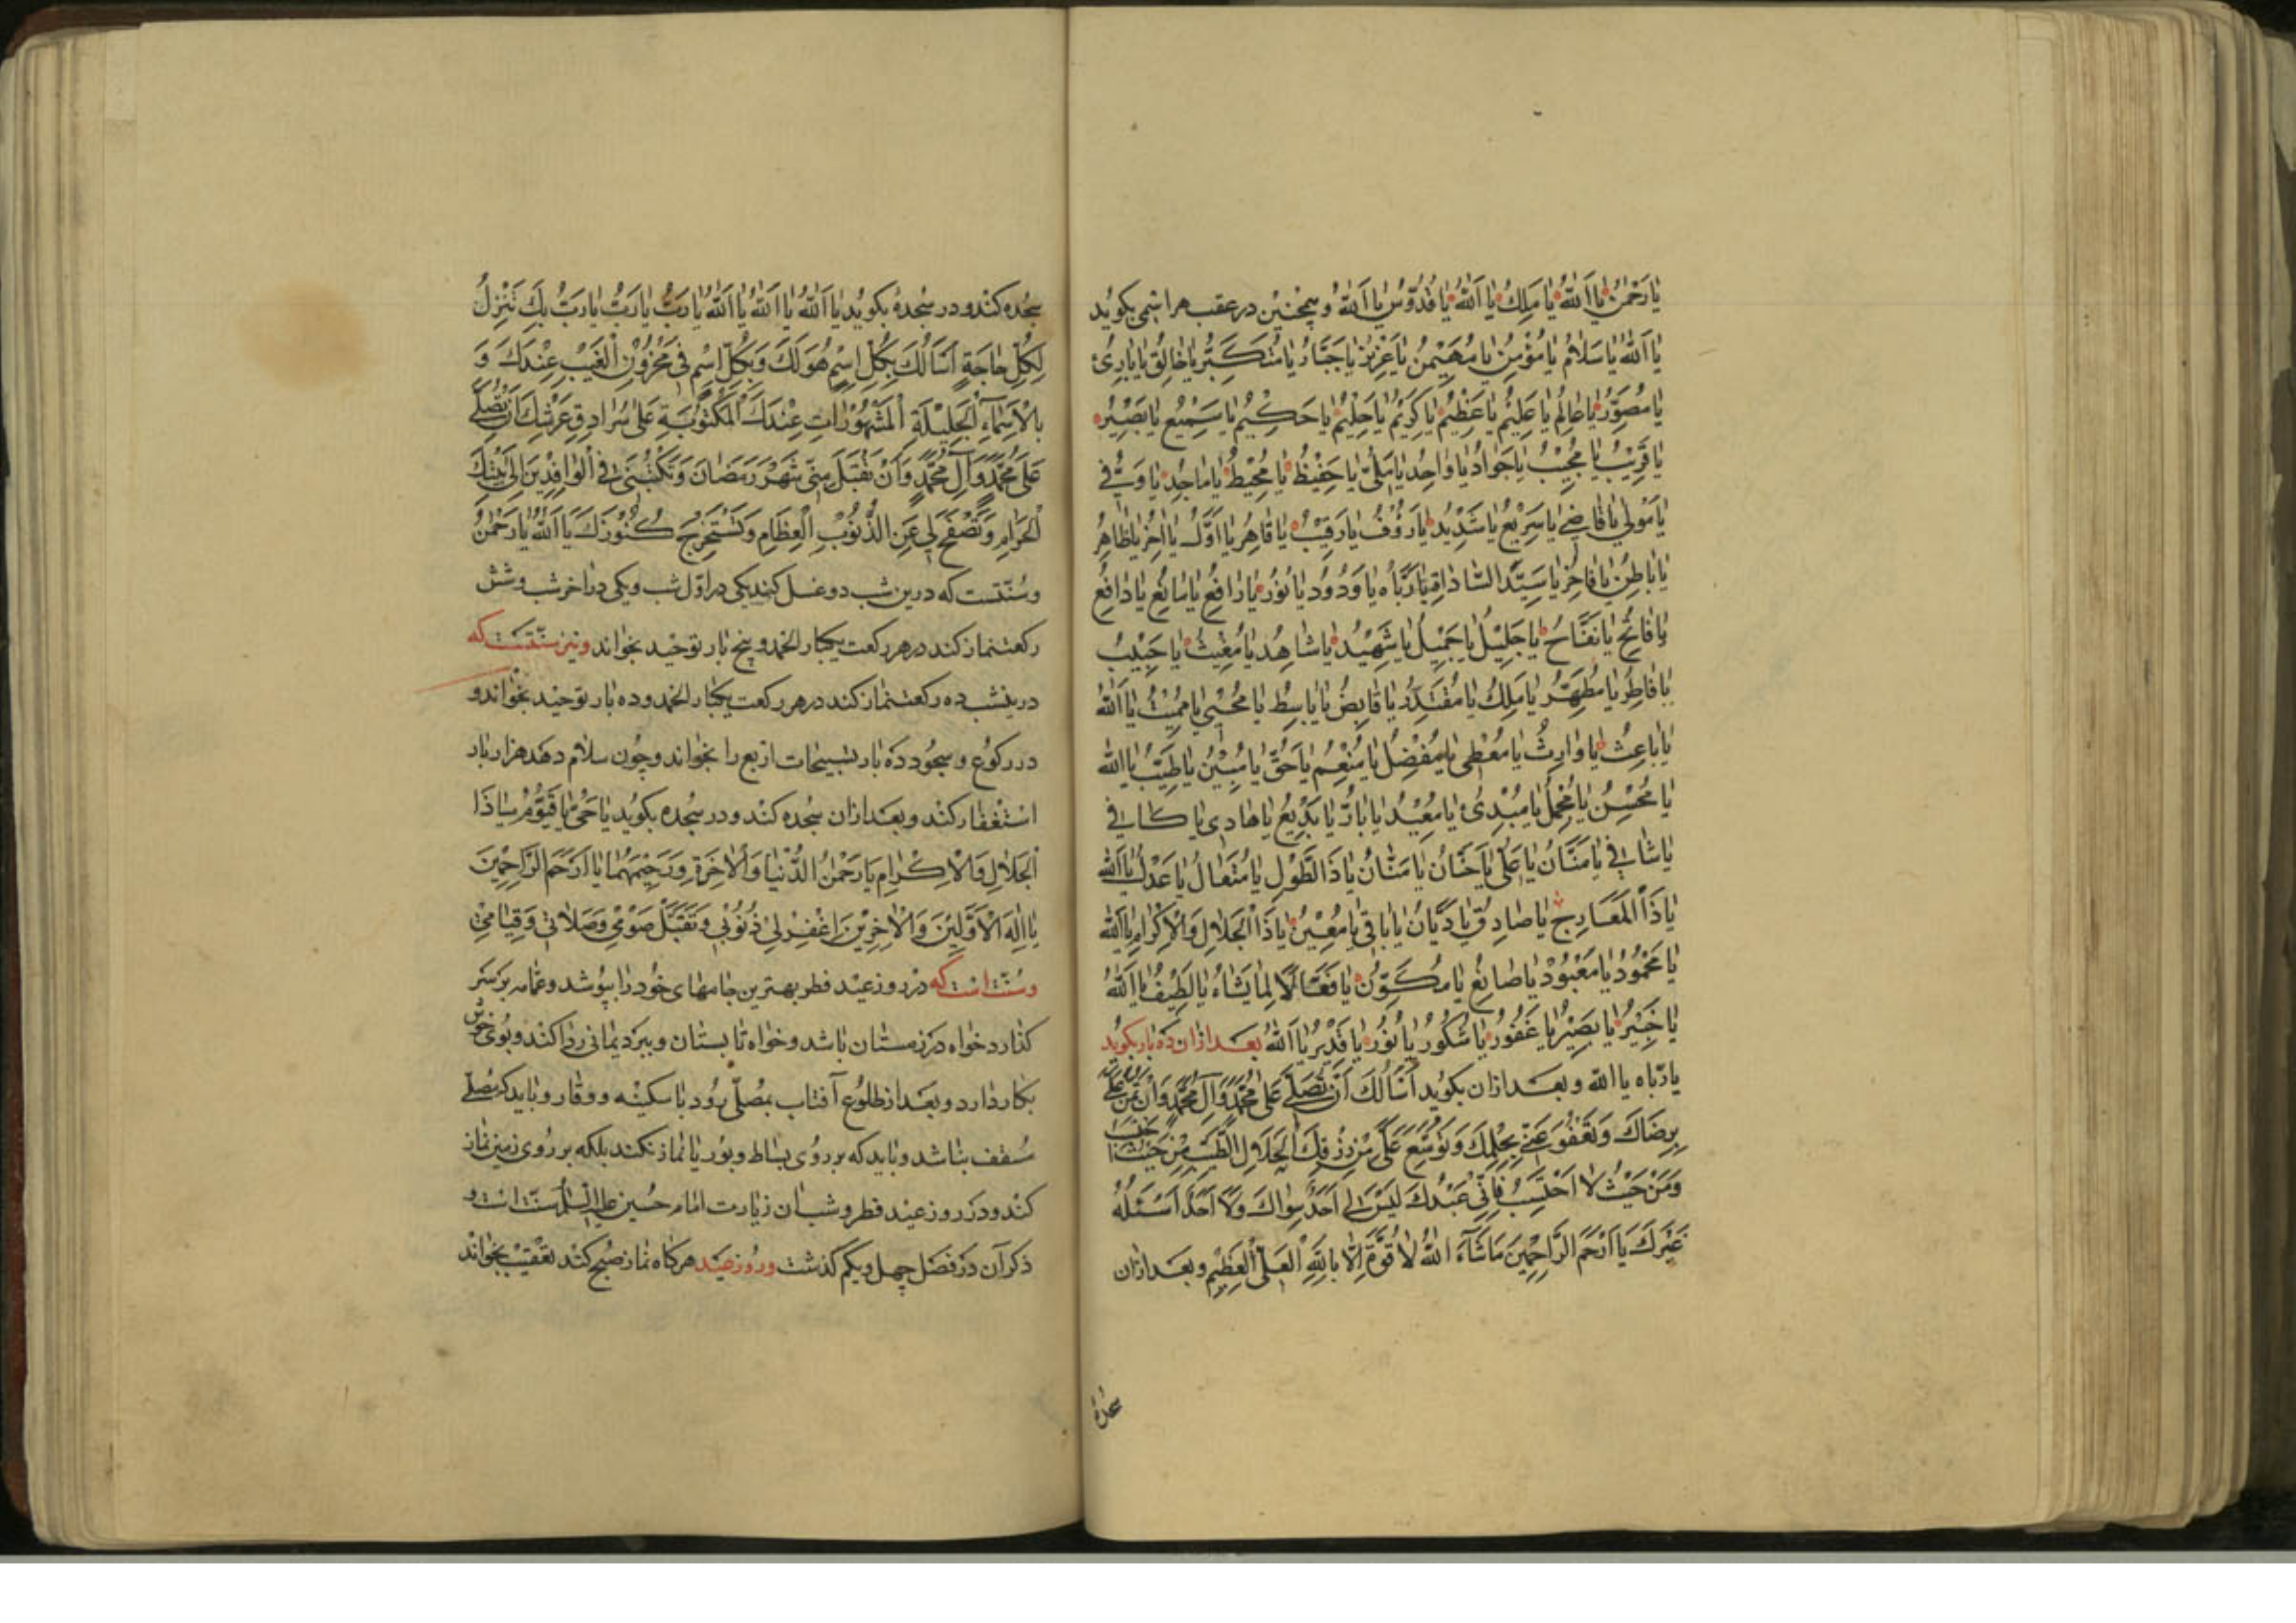 یا رَحْمٰنُ یا اَللّٰهُ یا مَلِكُ یا اَللّٰهُ یا قُدُّوسُ یا اَللّٰهُ و همچنین در عقب هر اسمی بکوئید
یا اَللّٰهُ یا سَلامُ یا مُؤْمِنُ یا مُهَیْمِنُ یا عَزِیزُ یا جَبَّارُ یا مُتَكَبِّرُ یا خالِقُ یا بارِئُ
یا مُصَوِّرُ یا عالِمُ یا عَلِیمُ یا عَظِیمُ یا كَرِیمُ یا حَلِیمُ یا حَكِیمُ یا سَمِیعُ یا بَصِیرُ
یا قَرِیبُ یا مُجِیبُ یا جَوادُ یا واحِدُ یا مَلِیُّ یا حَفِیظُ یا مُحِیطُ یا ماجِدُ یا وَفِیُّ
یا مَوْلیٰ یا قاضِی یا سَرِیعُ یا شَدِیدُ یا رَؤُفُ یا رَقِیبُ یا قاهِرُ یا اَوَّلُ یا اٰخِرُ یا ظاهِرُ
یا باطِنُ یا فاخِرُ یا سَیِّدَ السّاداتِ یا رَبّاه یا وَدُودُ یا نُورُ یا رافِعُ یا مانِعُ یا دافِعُ
یا فاتِحُ یا نَفَّاحُ یا جَلِیلُ یا جَمِیلُ یا شَهِیدُ یا شاهِدُ یا مُغِیثُ یا حَبِیبُ
یا فاطِرُ یا مُطَهِّرُ یا مَلِكُ یا مُقْتَدِرُ یا قابِضُ یا باسِطُ یا مُحْیِی یا مُمِیتُ یا اَللّٰهُ
یا باعِثُ یا وارِثُ یا مُعْطِی یا مُفْضِلُ یا مُنْعِمُ یا حَقُّ یا مُبِینُ یا طَیِّبُ یا الله
یا مُحْسِنُ یا مُجْمِلُ یا مُبْدِئُ یا مُعِیدُ یا بارُّ یا بَدِیعُ یا هادِی یا كافِی
یا شافِی یا مَنَّانُ یا عَلِیُّ یا حَنّانُ یا مَنّانُ یا ذَا الطَّوْلِ یا مُتَعالُ یا عَدْلُ یا الله
یا ذَا الْمَعارِجِ یا صادِقُ یا دَیّانُ یا باقِی یا مُعِینُ یا ذَا الْجَلالِ وَالْاِكْرامِ یا الله
یا مَحْمُودُ یا مَعْبُودُ یا صانِعُ یا مُكَوِّنُ یا فَعّالًا لِما یَشاءُ یا لَطِیفُ یا اَللّٰهُ
یا خَبِیرُ یا بَصِیرُ یا غَفُورُ یا شَكُورُ یا نُورُ یا قَدِیرُ یا اَللّٰهُ بعد ازان ده بار بکوئید
یا ربّاه یا الله و بعد ازان بکوئید اَسْأَلُكَ اَنْ تُصَلِّیَ عَلیٰ مُحَمَّدٍ وَآلِ مُحَمَّدٍ وَاَنْ تَمُنَّ عَلَیَّ
بِرِضاكَ وَتَعْفُوَ عَنِّی بِحِلْمِكَ وَتُوَسِّعَ عَلَیَّ مِنْ رِزْقِكَ الْحَلالِ الطَّیِّبِ مِنْ حَیْثُ احتسب
وَمِنْ حَیْثُ لا اَحْتَسِبُ فَاِنِّی عَبْدُكَ لَیْسَ لِی اَحَدٌ سِواكَ وَلا اَحَدٌ اَسْئَلُهُ
غَیْرَكَ یا اَرْحَمَ الرّاحِمِینَ ماشاءَ اللهُ لا قُوَّةَ اِلّا بِاللهِ الْعَلِیِّ الْعَظِیمِ و بعد ازان
سجده
سجده كند و در سجده بکوئید یا اَللّٰهُ یا اَللّٰهُ یا اَللّٰهُ یا رَبُّ یا رَبُّ یا رَبُّ بِكَ تَنْزِلُ
لِكُلِّ حاجَةٍ اَسْأَلُكَ بِكُلِّ اِسْمٍ هُوَ لَكَ وَبِكُلِّ اِسْمٍ فِی مَخْزُونِ الْغَیْبِ عِنْدَكَ وَ
بِالْاَسْماءِ الْجَلِیلَةِ الْمَشْهُوراتِ عِنْدَكَ الْمَكْتُوبَةِ عَلیٰ سُرادِقِ عَرْشِكَ اَنْ تُصَلِّیَ
عَلیٰ مُحَمَّدٍ وَآلِ مُحَمَّدٍ وَاَنْ تَقْبَلَ مِنِّی شَهْرَ رَمَضانَ وَتَكْتُبَنِی فِی الْوافِدِینَ اِلیٰ بَیْتِكَ
الْحَرامِ وَتَصْفَحَ لِی عَنِ الذُّنُوبِ الْعِظامِ وَتَسْتَخْرِجَ كُنُوزَكَ یا اَللّٰهُ یا رَحْمٰنُ
و سنّتست که درین شب دو غسل کند یکی در اوّل شب و یکی در اخر شب و شش
رکعت نماز کند در هر رکعت یکبار الحمد و پنج بار توحید بخواند و نیز سنّتست که
درینشب ده رکعت نماز کند در هر رکعت یکبار الحمد و ده بار توحید بخواند و
در رکوع و سجود ده بار تسبیحات اربع را بخواند و چون سلام دهد هزار بار
استغفار کند و بعد ازان سجده کند و در سجده بکوئید یا حَیُّ یا قَیُّومُ یا ذَا
الْجَلالِ وَالْاِكْرامِ یا رَحْمٰنَ الدُّنْیا وَالْاٰخِرَةِ وَرَحِیمَهُما یا اَرْحَمَ الرّاحِمِینَ
یا اِلٰهَ الْاَوَّلِینَ وَالْاٰخِرِینَ اغْفِرْ لِی ذُنُوبِی وَتَقَبَّلْ صَوْمِی وَصَلاتِی وَقِیامِی
و سنّت است که در روز عید فطر بهترین جامهای خود را بپوشد و عمامه بر سر
گذارد خواه در زمستان باشد و خواه تابستان و ببرد یمانی ردا کند و بوی خوش
بکار دارد و بعد از طلوع آفتاب بمصلّی رود با سکینه و وقار و باید که مصلّی
مسقف نباشد و باید که بر روی بساط و بوریا نماز نکند بلکه بر روی زمین نماز
کند و در روز عید فطر و شب ان زیارت امام حسین علیه السلام سنّت است و
ذکر آن در فصل چهل و یکم گذشت و روز عید هر کاه نماز صبح کند تعقیب بخواند